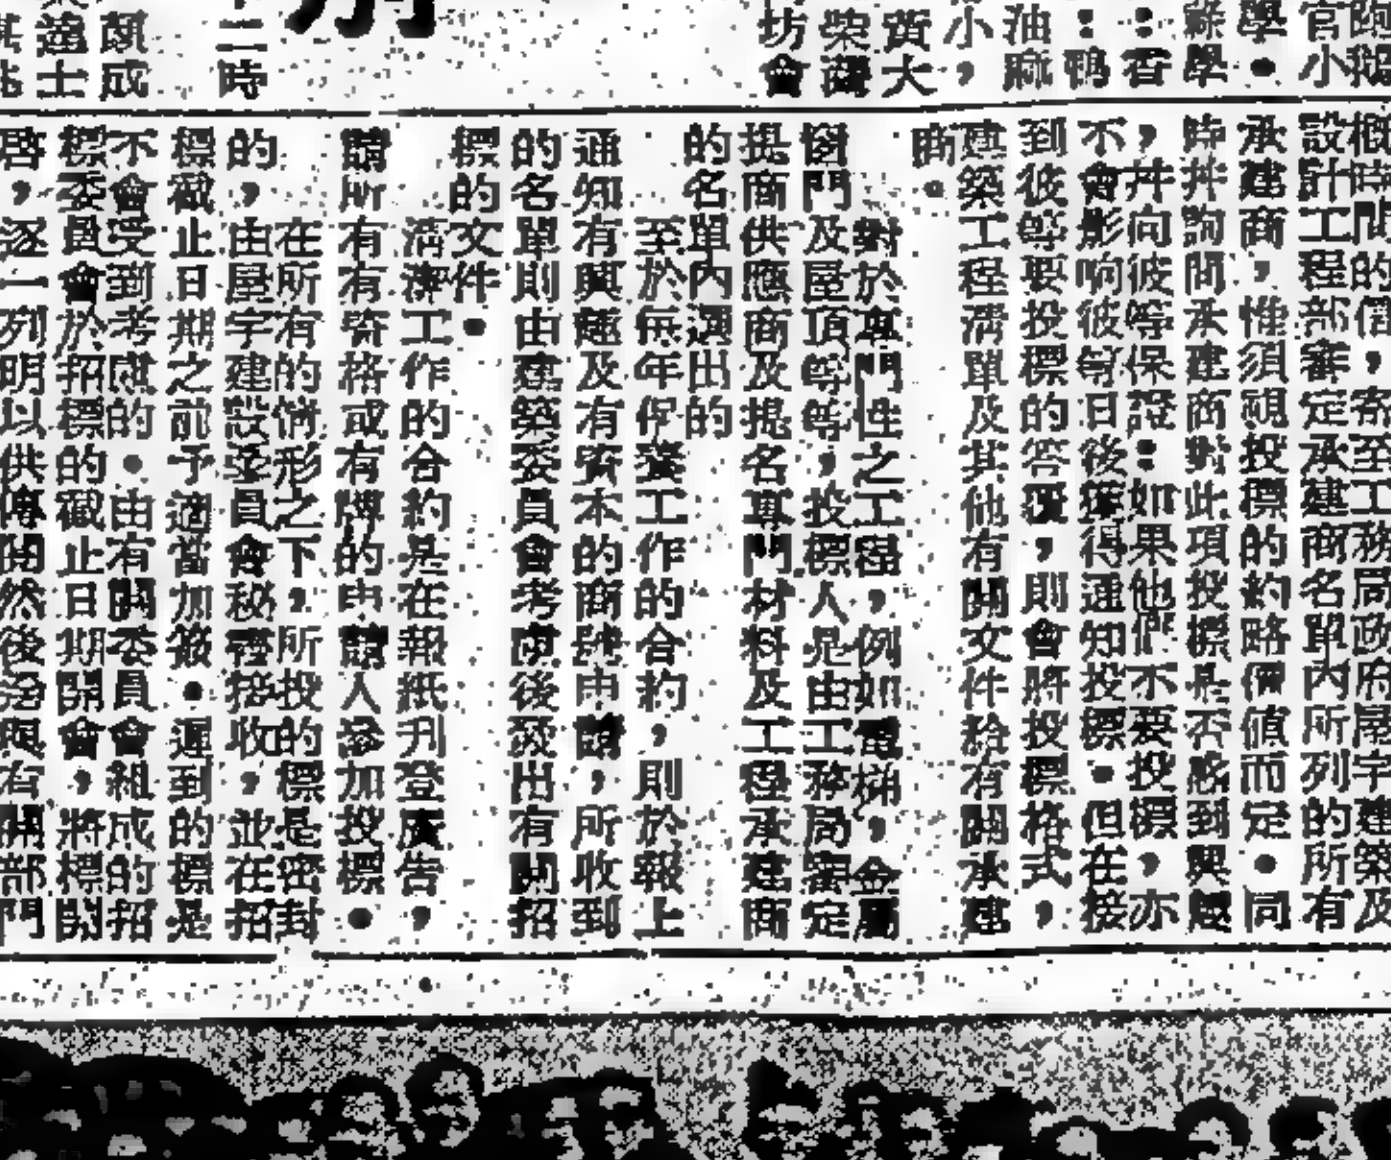 概時間的價，寄至工務局政府屋宇建築及
設計工程部審定承建商名單內所列的所有
承建商，惟須視投標的約略價值而定。同
時并詢問承建商對此項投標是否感到興趣
，并向彼等保證：如果他們不要投標，亦
不會影响彼等日後獲得通知投標。但在接
到彼等要投標的答覆，則會將投標格式，
建築工程清單及其他有關文件給有關承建
商。
對於專門性之工程，例如電梯，金屬
窗門及屋頂等等，投標人是由工務局審定
提商供應商及提名專門材料及工程承建商
的名單內選出的
至於每年保養工作的合約，則於報上
通知有興趣及有資本的商號申請，所收到
的名單則由建築委員會考慮後發出有關招
標的文件。
清潔工作的合約是在報紙刋登廣告，
請所有有資格或有牌的申請人參加投標。
在所有的情形之下，所投的標是密封
的，由屋宇建設委員會秘書接收，並在招
標截止日期之前予適當加簽。遲到的標是
不會受到考慮的。由有關委員會組成的招
標委員會於招標的截止日期開會，將標開
啓，逐一列明以供傳閱然後發與有關部門